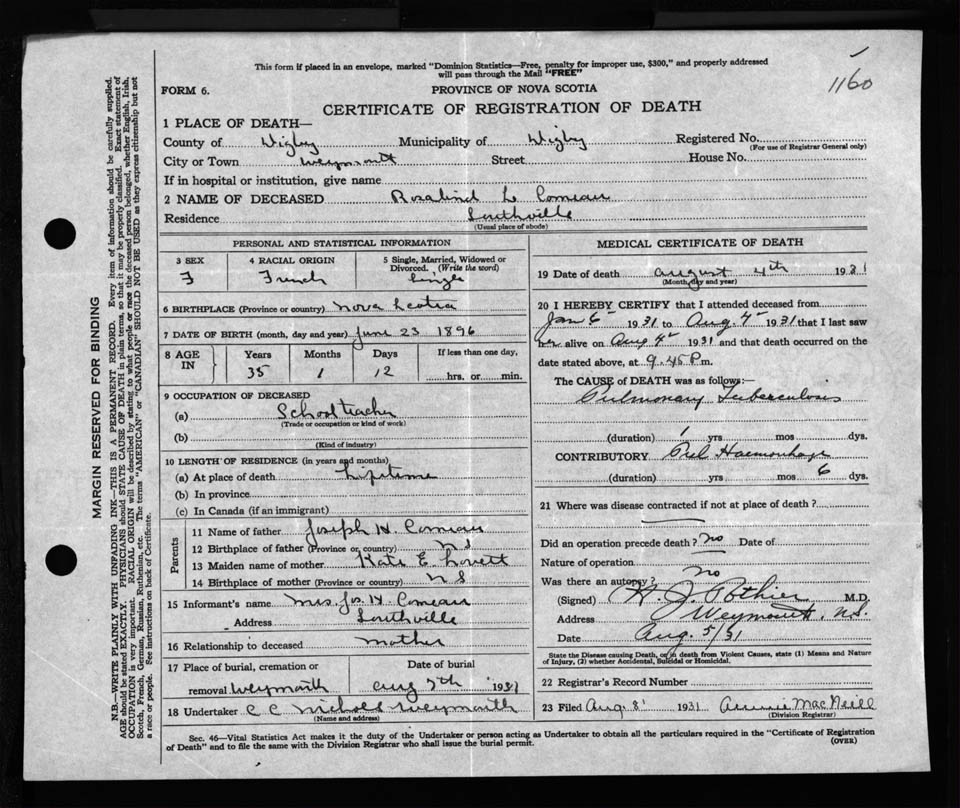 1160
This form if placed in an envelope, marked "Dominion Statistics—Free, penalty for improper use, $300," and properly addressed
will pass through the Mail "FREE"
FORM 6.
PROVINCE OF NOVA SCOTIA
CERTIFICATE OF REGISTRATION OF DEATH
1 PLACE OF DEATH—
County of Digby Municipality of Digby Registered No.
(For use of Registrar General only)
City or Town Weymouth Street House No.
If in hospital or institution, give name
2 NAME OF DECEASED Rosalind L Comeau
Residence Southville
(Usual place of abode)
PERSONAL AND STATISTICAL INFORMATION
3 SEX 4 RACIAL ORIGIN 5 Single, Married, Widowed or Divorced. (Write the word)
F French Single
6 BIRTHPLACE (Province or country) Nova Scotia
7 DATE OF BIRTH (month, day and year) June 23 1896
8 AGE IN Years Months Days If less than one day,
35 1 12 hrs. or min.
9 OCCUPATION OF DECEASED
(a) School teacher
(Trade or occupation or kind of work)
(b)
(Kind of industry)
10 LENGTH OF RESIDENCE (in years and months)
(a) At place of death Lifetime
(b) In province
(c) In Canada (if an immigrant)
Parents
11 Name of father Joseph H. Comeau
12 Birthplace of father (Province or country) N S
13 Maiden name of mother Kate E. Lovett
14 Birthplace of mother (Province or country) N S
15 Informant's name Mrs. Jos. H. Comeau
Address Southville
16 Relationship to deceased mother
17 Place of burial, cremation or Date of burial
removal Weymouth Aug 7th 1931
18 Undertaker C C Nichols Weymouth
(Name and address)
MEDICAL CERTIFICATE OF DEATH
19 Date of death August 4th 1931
(Month, day and year)
20 I HEREBY CERTIFY that I attended deceased from
Jan 6 1931 to Aug. 4 1931 that I last saw
her alive on Aug 4 1931 and that death occurred on the
date stated above, at 9.45 P m.
The CAUSE of DEATH was as follows:—
Pulmonary Tuberculosis
(duration) 1 yrs mos dys.
CONTRIBUTORY Pul Haemorrhage
(duration) yrs mos 6 dys.
21 Where was disease contracted if not at place of death?
Did an operation precede death? no Date of
Nature of operation
Was there an autopsy? no
(Signed) H. J. Pothier M.D.
Address Weymouth, N.S.
Date Aug. 5/31
State the Disease causing Death, or in death from Violent Causes, state (1) Means and Nature
of Injury, (2) whether Accidental, Suicidal or Homicidal.
22 Registrar's Record Number
23 Filed Aug. 8 1931 Annie MacNeill
(Division Registrar)
Sec. 46—Vital Statistics Act makes it the duty of the Undertaker or person acting as Undertaker to obtain all the particulars required in the "Certificate of Registration
of Death" and to file the same with the Division Registrar who shall issue the burial permit.
(OVER)
MARGIN RESERVED FOR BINDING
N.B.—WRITE PLAINLY WITH UNFADING INK—THIS IS A PERMANENT RECORD. Every item of information should be carefully supplied.
AGE should be stated EXACTLY. PHYSICIANS should STATE CAUSE OF DEATH in plain terms, so that it may be properly classified. Exact statement of
OCCUPATION is very important. RACIAL ORIGIN will be described by stating to what people or race the deceased person belonged, whether English, Irish,
Scotch, French, German, Russian, Ruthenian, etc. The terms "AMERICAN" or "CANADIAN" SHOULD NOT BE USED as they express citizenship but not
a race or people. See instructions on back of Certificate.